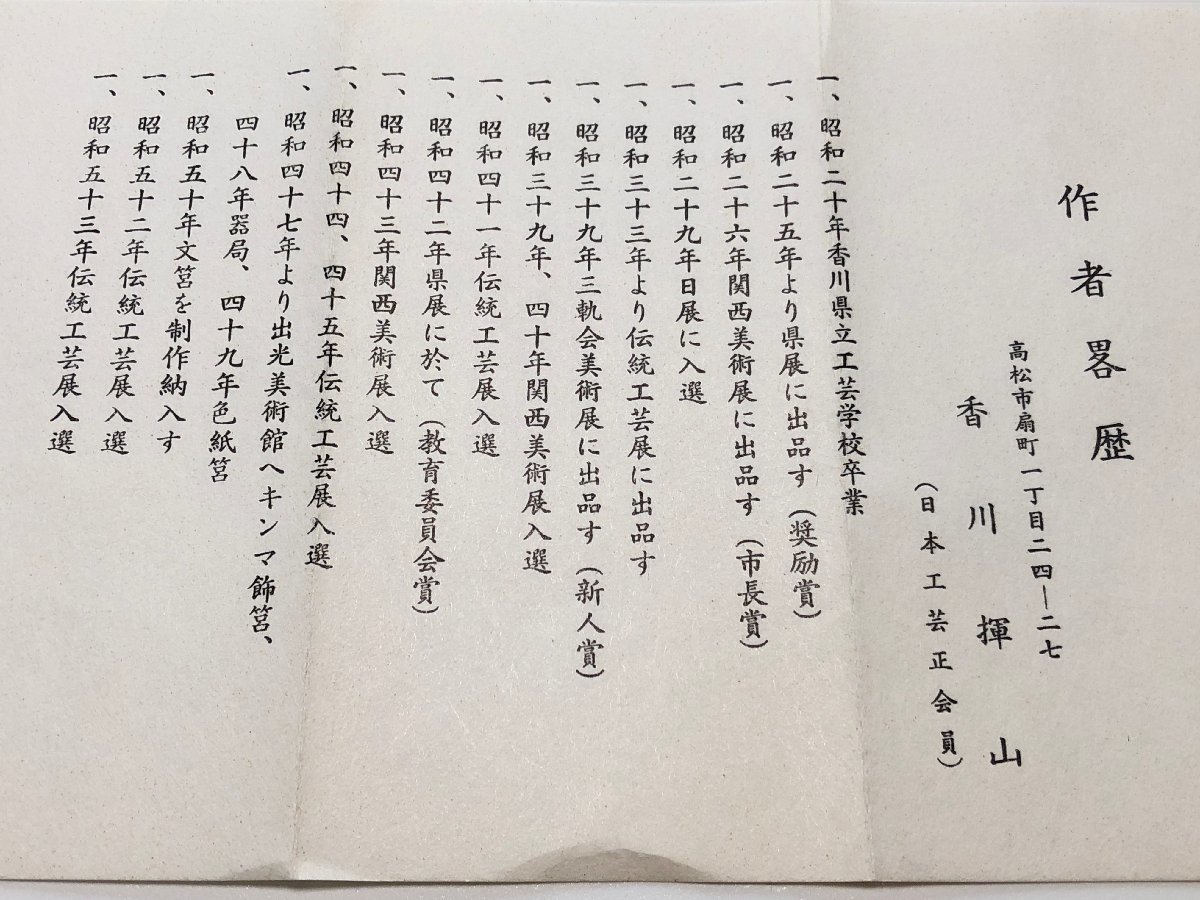 作者畧歴
高松市扇町一丁目二四―二七
香川揮山
(日本工芸正会員)
一、昭和二十年香川県立工芸学校卒業
一、昭和二十五年より県展に出品す(奨励賞)
一、昭和二十六年関西美術展に出品す(市長賞)
一、昭和二十九年日展に入選
一、昭和三十三年より伝統工芸展に出品す
一、昭和三十九年三軌会美術展に出品す(新人賞)
一、昭和三十九年、四十年関西美術展入選
一、昭和四十一年伝統工芸展入選
一、昭和四十二年県展に於て(教育委員会賞)
一、昭和四十三年関西美術展入選
一、昭和四十四、四十五年伝統工芸展入選
一、昭和四十七年より出光美術館へキンマ飾筥、
四十八年器局、四十九年色紙筥
一、昭和五十年文筥を制作納入す
一、昭和五十二年伝統工芸展入選
一、昭和五十三年伝統工芸展入選